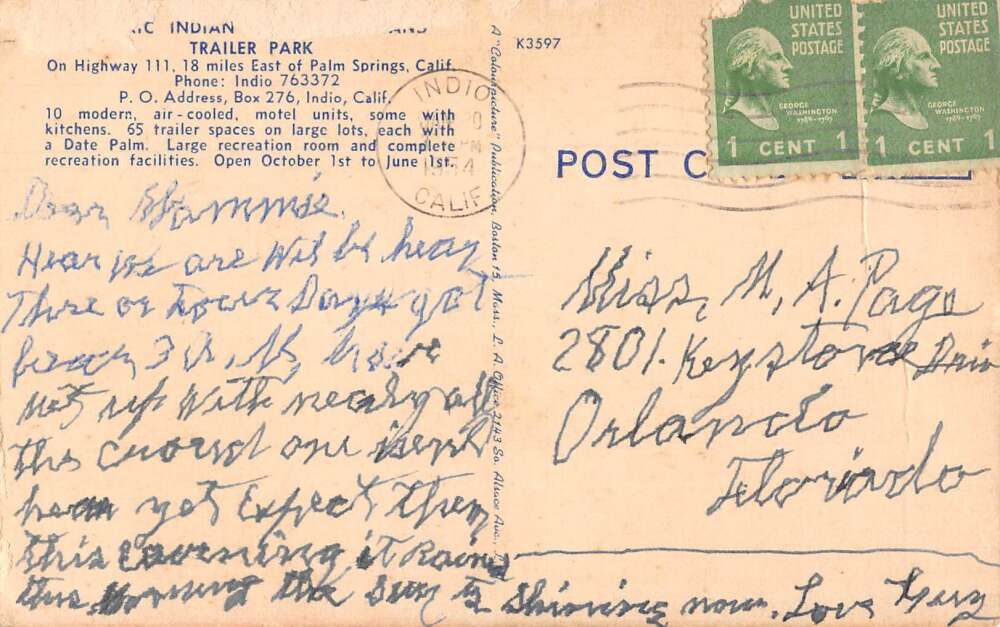 INDIAN
TRAILER PARK
On Highway 111, 18 miles East of Palm Springs, Calif.
Phone: Indio 763372
P. O. Address, Box 276, Indio, Calif.
10 modern, air-cooled, motel units, some with
kitchens. 65 trailer spaces on large lots, each with
a Date Palm. Large recreation room and complete
recreation facilities. Open October 1st to June 1st.
Dear
Hear we are Will be hear
Three or Four Days got
3 have
met up with nearly all
the crowd one isent
hear yet Expect them
this evening it Rained
this morning the Sun is Shining now. Love
A "Colourpicture" Publication, Boston 15, Mass., L. A. Office 2143 So. Alsace Ave.,
K3597
INDIO
PM
1954
CALIF
UNITED
STATES
POSTAGE
GEORGE
WASHINGTON
1789-1797
1 CENT 1
UNITED
STATES
POSTAGE
GEORGE
WASHINGTON
1789-1797
1 CENT 1
POST
Miss, M, A. Page
2801. Keystone
Orlando
Florida